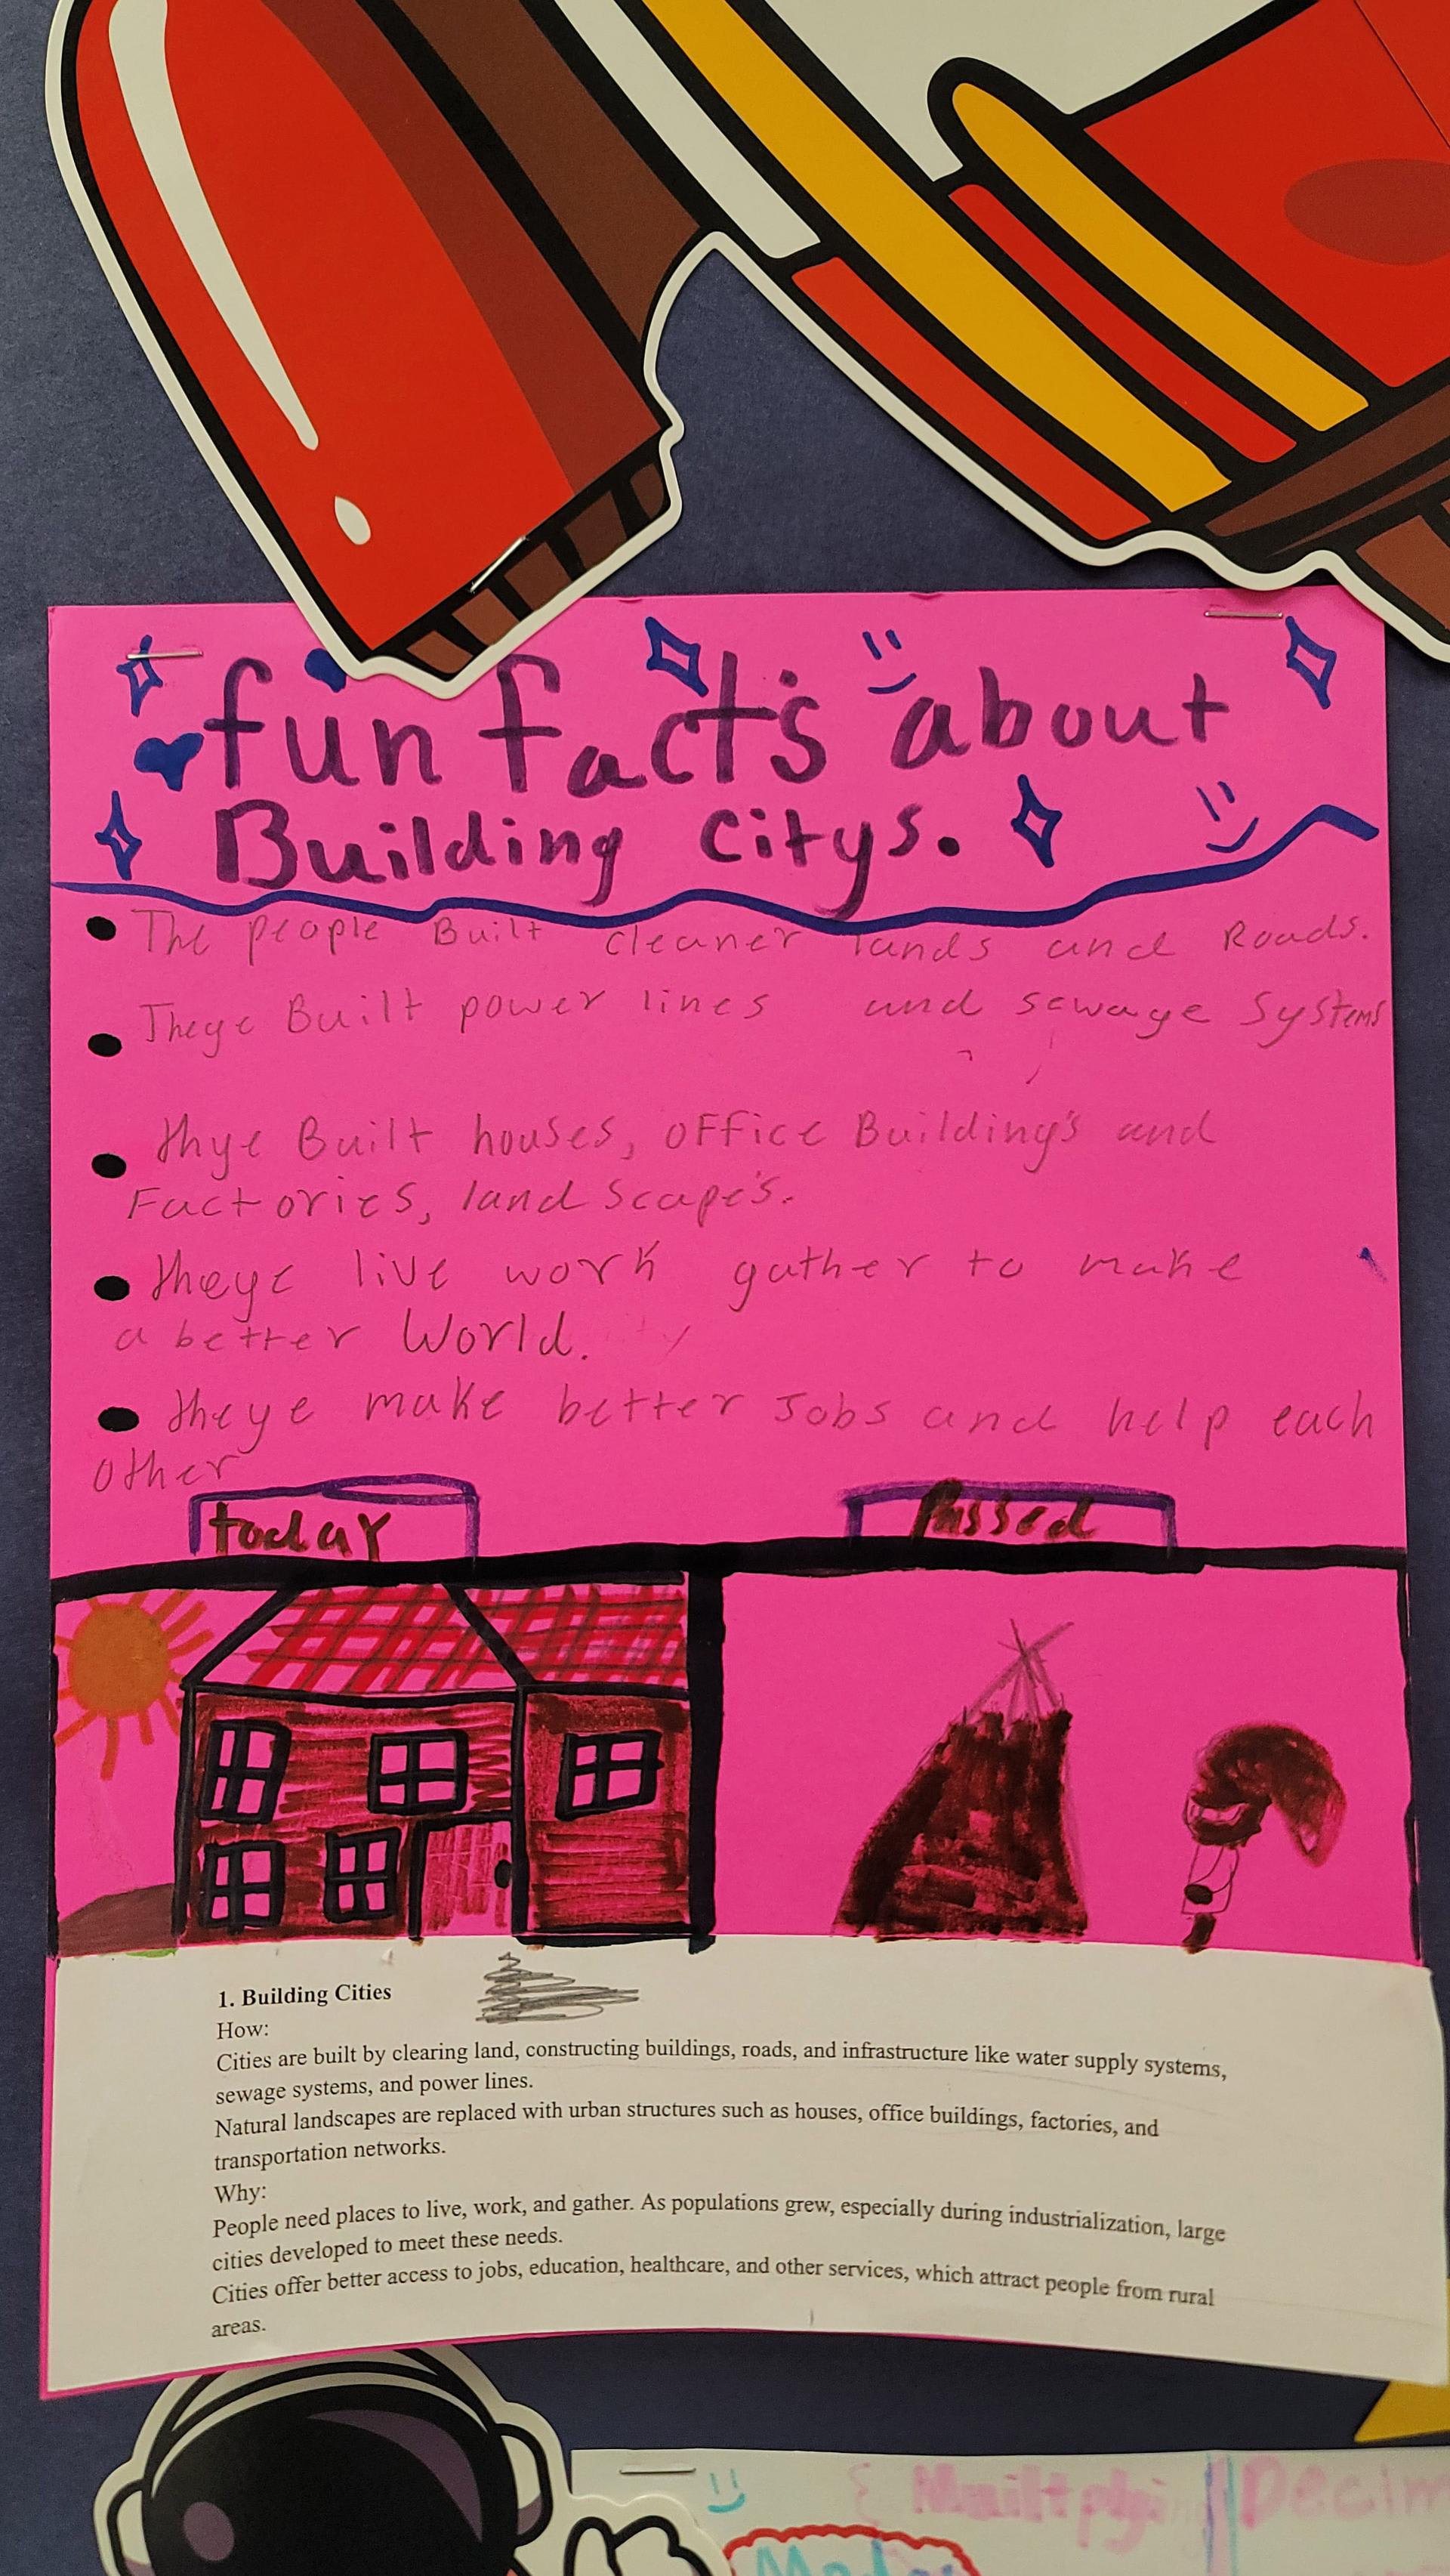 fun facts about
Building citys.
The people Built cleaner lands and Roads.
Theye Built power lines and sewage Systems
thye Built houses, office Building's and
Factories, landscape's.
theye live work gather to make
a better World.
theye make better Jobs and help each
other
today
Passed
1. Building Cities
How:
Cities are built by clearing land, constructing buildings, roads, and infrastructure like water supply systems,
sewage systems, and power lines.
Natural landscapes are replaced with urban structures such as houses, office buildings, factories, and
transportation networks.
Why:
People need places to live, work, and gather. As populations grew, especially during industrialization, large
cities developed to meet these needs.
Cities offer better access to jobs, education, healthcare, and other services, which attract people from rural
areas.